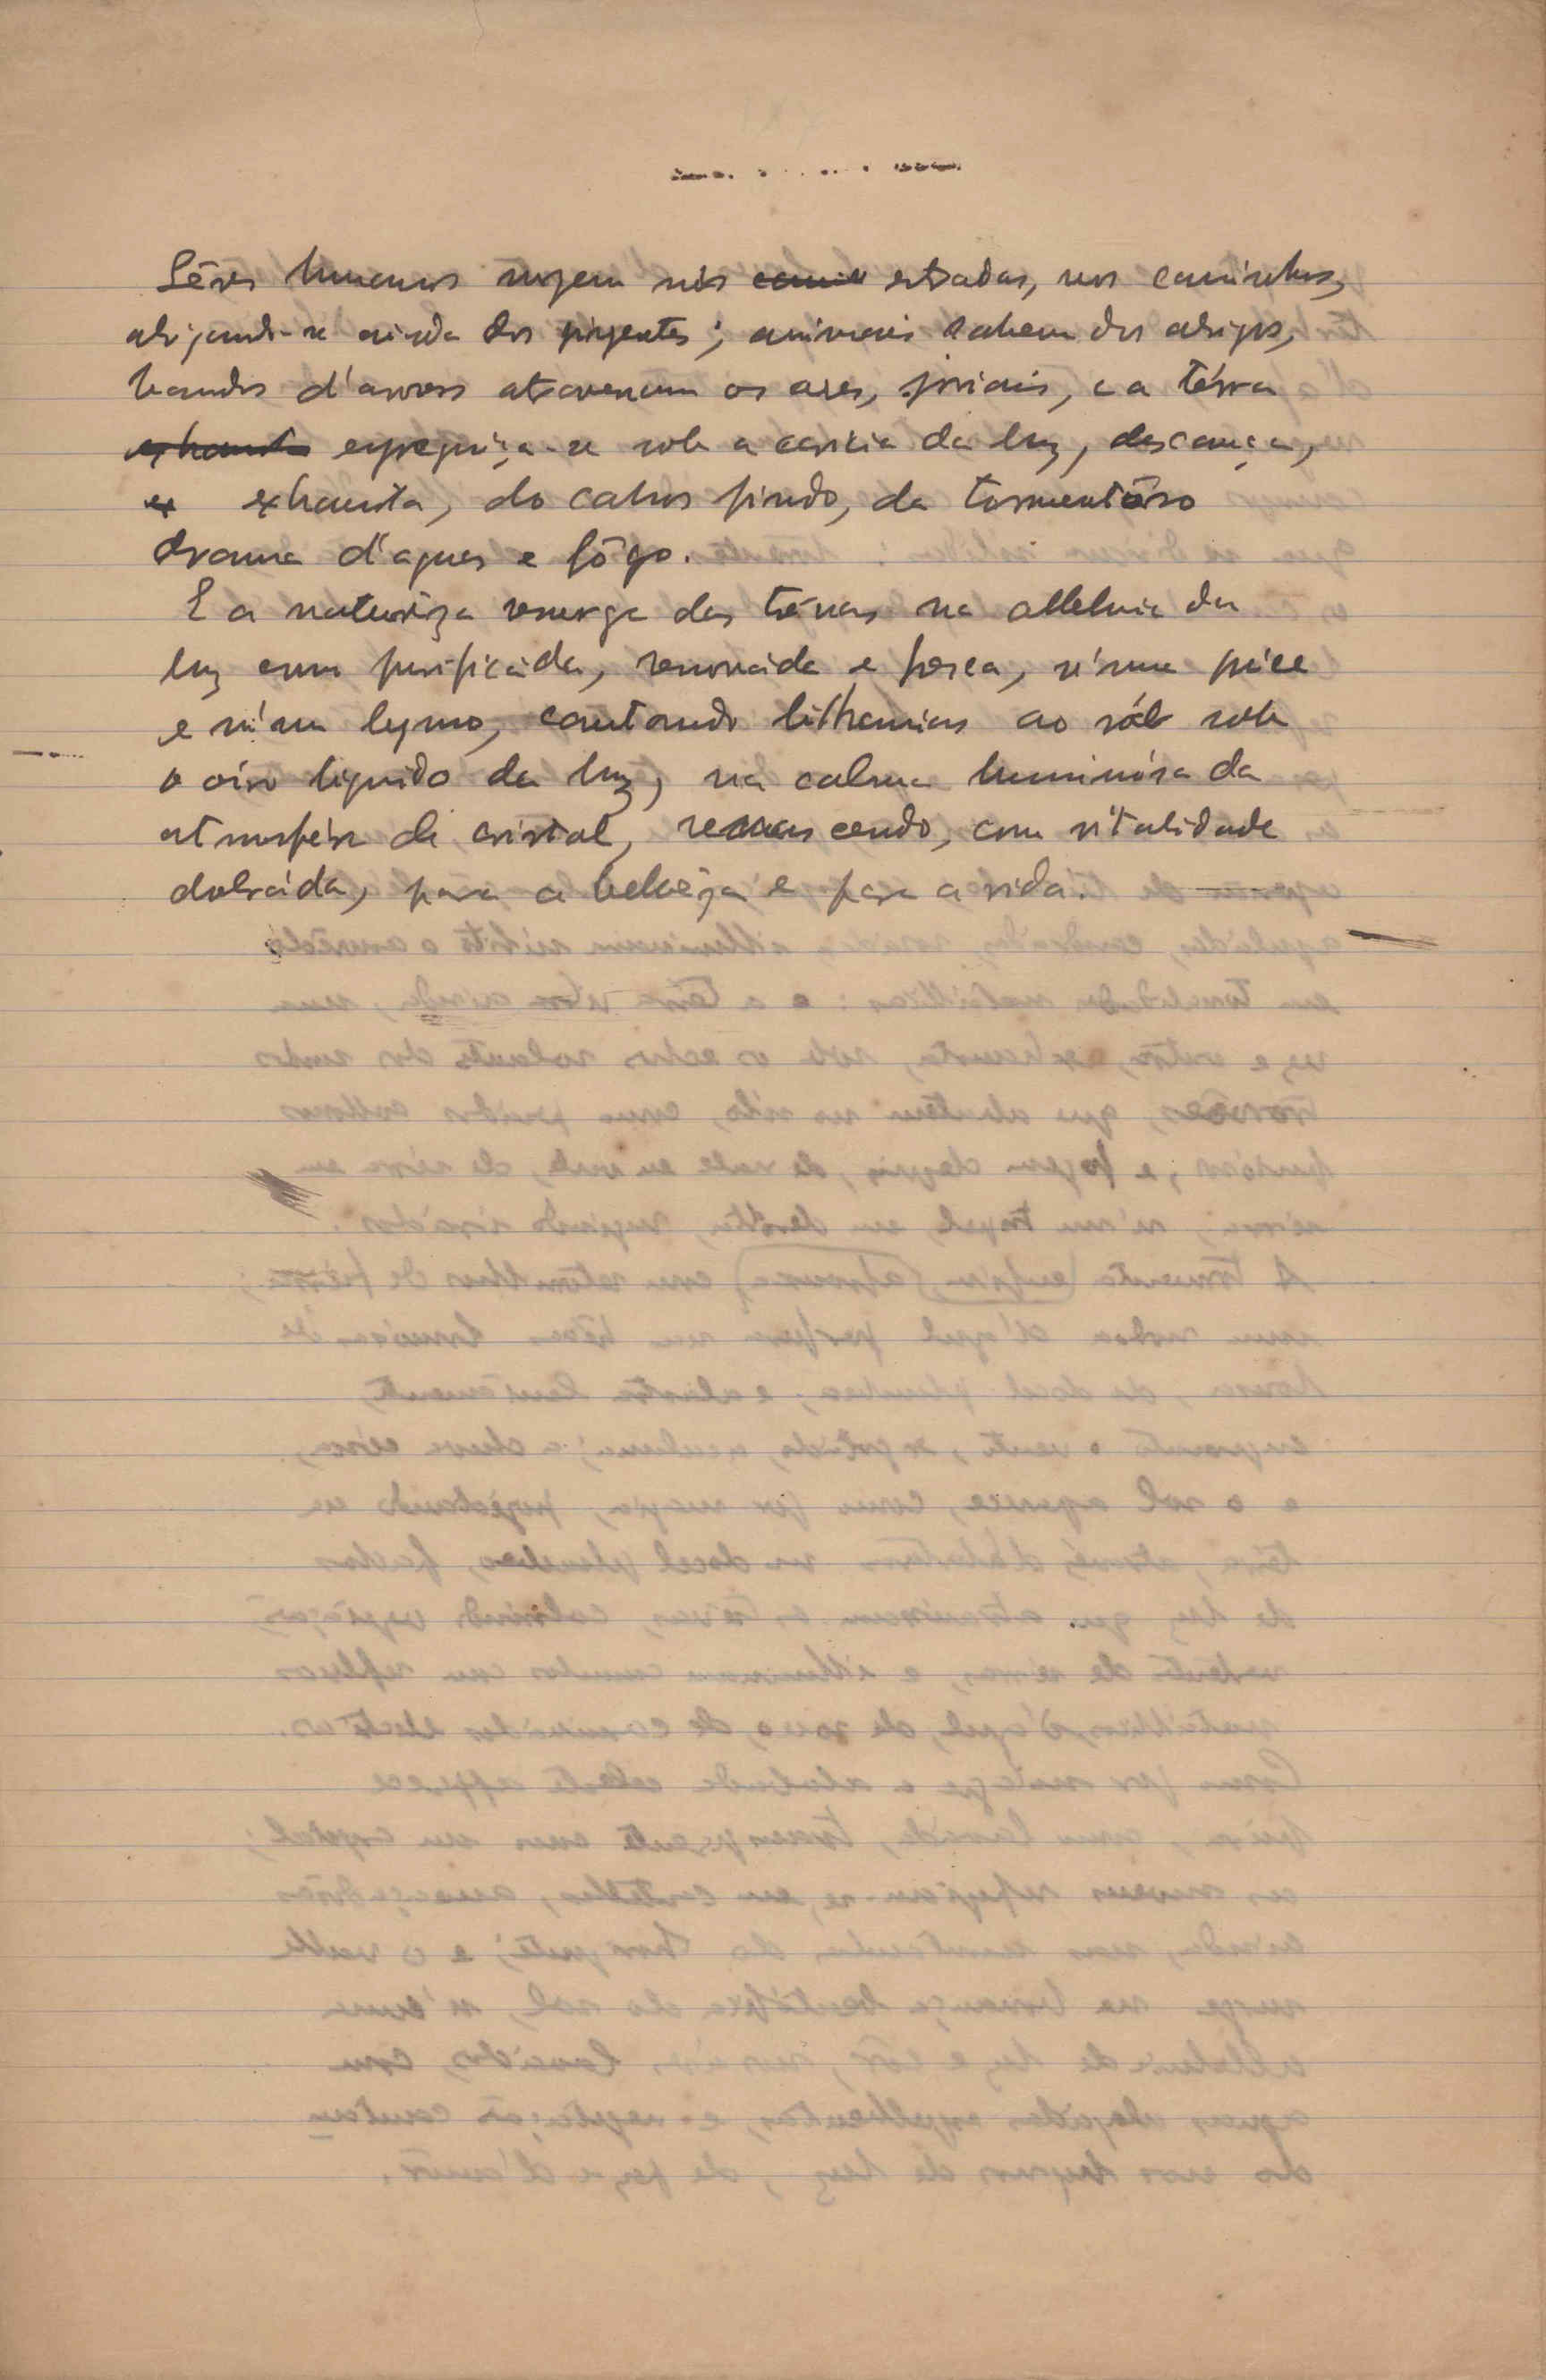 Sêres humanos surgem nas estradas, nos caminhos,
abrigando-se ainda dos pingentes; animais sahem dos abrigos,
bandos d'aves atravessam os ares, joviais, e a térra
espreguiça-se sob a caricia da luz, descança,
exhausta, do cahos findo, da tormentôso
drama d'aguas e fôgo.
E a naturêza emerge das trévas na alleluia da
luz como purificada, renovada e fresca, n'uma préce
e n'um hymno, cantando lithanias ao sól sob
o oiro liquido da luz, na calma luminósa da
atmosféra de cristal, renascendo, com vitalidade
dobráda, para a bellêza e para a vida.